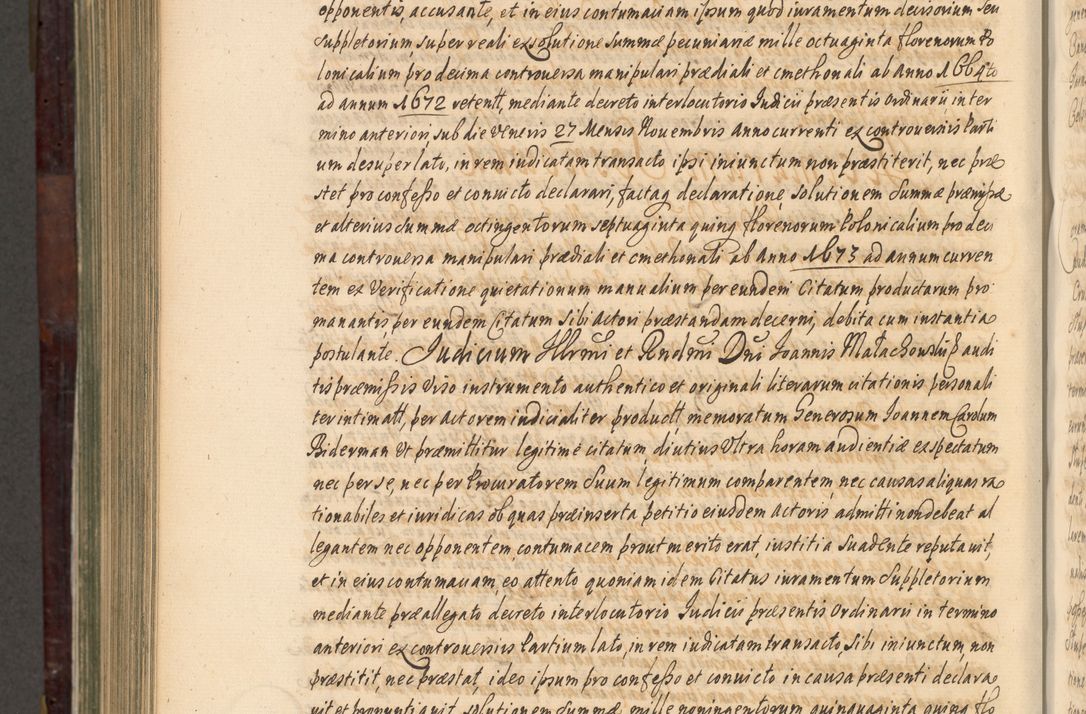 opponentis, accusante, et in eius contumaciam ipsum quod iuramentum decisorium seu
suppletorium, super reali exsolutione summæ pecuniariæ mille octuaginta florenorum Po
lonicalium, pro decima controversa manipulari prædiali et cmethonali ab Anno 1664to
ad annum 1672 retentt, mediante decreto interlocutorio Iudicii præsentis ordinarii in ter
mino anteriori sub die Veneris 27 Mensis Novembris Anno currenti ex controversiis Parti
um desuper lato, in rem iudicatam transacto ipsi iniunctum non præstiterit, nec præ
stet pro confesso et convicto declarari, factaq declaratione, solutionem summæ præmissæ
et alterius summæ octingentorum septuaginta quinq florenorum Polonicalium pro deci
ma controversa manipulari prædiali et cmethonali ab Anno 1673 ad annum curren
tem ex Verificatione quietationum manualium per eundem Citatum productarum pro
manantis, per eundem Citatum sibi Actori præstandam decerni, debita cum instantia
postulante. Iudicium Illrmi et Rndmi Dni Ioannis Małachowski audi
tis præmissis viso instrumento authentico et originali literarum citationis personali
ter intimatt, per actorem iudicialiter productt, memoratum Generosum Ioannem Carolum
Biderman Ut præmittitur legitime citatum, diutius Ultra horam audientiæ expectatum
nec per se, nec per Procuratorem suum legitimum comparentem, nec causas aliquas ra
tionabiles et iuridicas ob quas præinserta petitio eiusdem actoris admitti non debeat al
legantem nec opponentem, contumacem, prout merito erat, iustitia suadente reputavit,
et in eius contumaciam, eo attento quoniam idem Citatus iuramentum suppletorium
mediante præallegato decreto interlocutorio Iudicii præsentis Ordinarii in termino
anteriori ex controversiis Partium lato, in rem iudicatam transacto, sibi iniunctum, non
præstitit, nec præstat, ideo ipsum pro confesso et convicto in causa præsenti declara
vit et pronuntiavit solutionem summæ mille noningentorum quinquaginta quinq flo